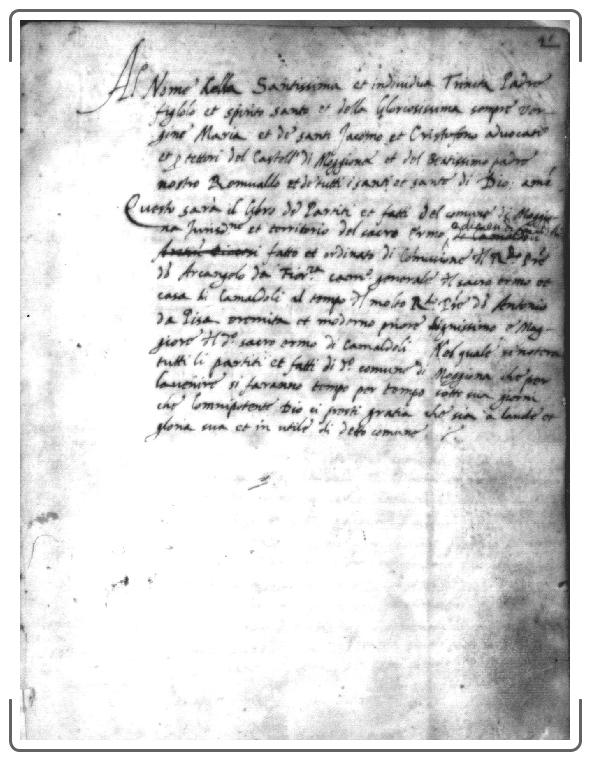 Al Nome della Santissima et individua Trinita Padre
figlolo et spirito santo et della Gloriosissima sempre ver-
gine Maria et de santi Jacomo et Cristofano advocati
et ptettori del Castello di Moggiona et del Beatissimo padre
nostro Romualdo et de tutti i santi et sante di Dio: amē
Questo sarà il libro dè Partiti et fatti del comune di Moggio-
na Jurisdne et territorio del sacro Ermo di Camaldoli
fatto et ordinato di Comissione dl Rdo Pre
dō Arcangelo da Fiorza camro generale dl sacro ermo et
casa di Camaldoli al tempo dl molto Rdo Pre dō Antonio
da Pisa eremita et moderno priore dignissimo et Mag-
giore dl do sacro ermo di Camaldoli Nel quale si notera
tutti li partiti et fatti di do comune di Moggiona che per
lavenire si faranno tempo per tempo sotto sua giorni
che lomnipotente Dio ci presti gratia che sia à laude et
gloria sua et in utile di detto comune